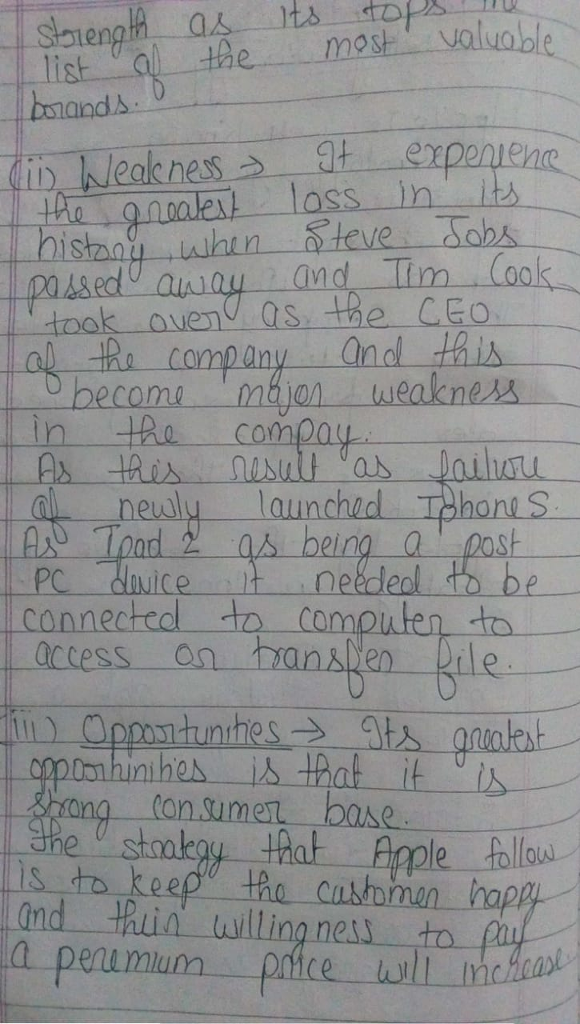 strength as its tops the
list of the most valuable
brands.
(ii) Weakness → It experience
the greatest loss in its
history when Steve Jobs
passed away and Tim Cook
took over as the CEO
of the company and this
become major weakness
in the compay.
As this result as failure
of newly launched Iphone S.
As Ipad 2 as being a post
PC device it needed to be
connected to computer to
access or transfer file.
(iii) Opportunities → Its greatest
opportunities is that it is
strong consumer base.
The strategy that Apple follow
is to keep the customer happy
and their willingness to pay
a peremium price will increase